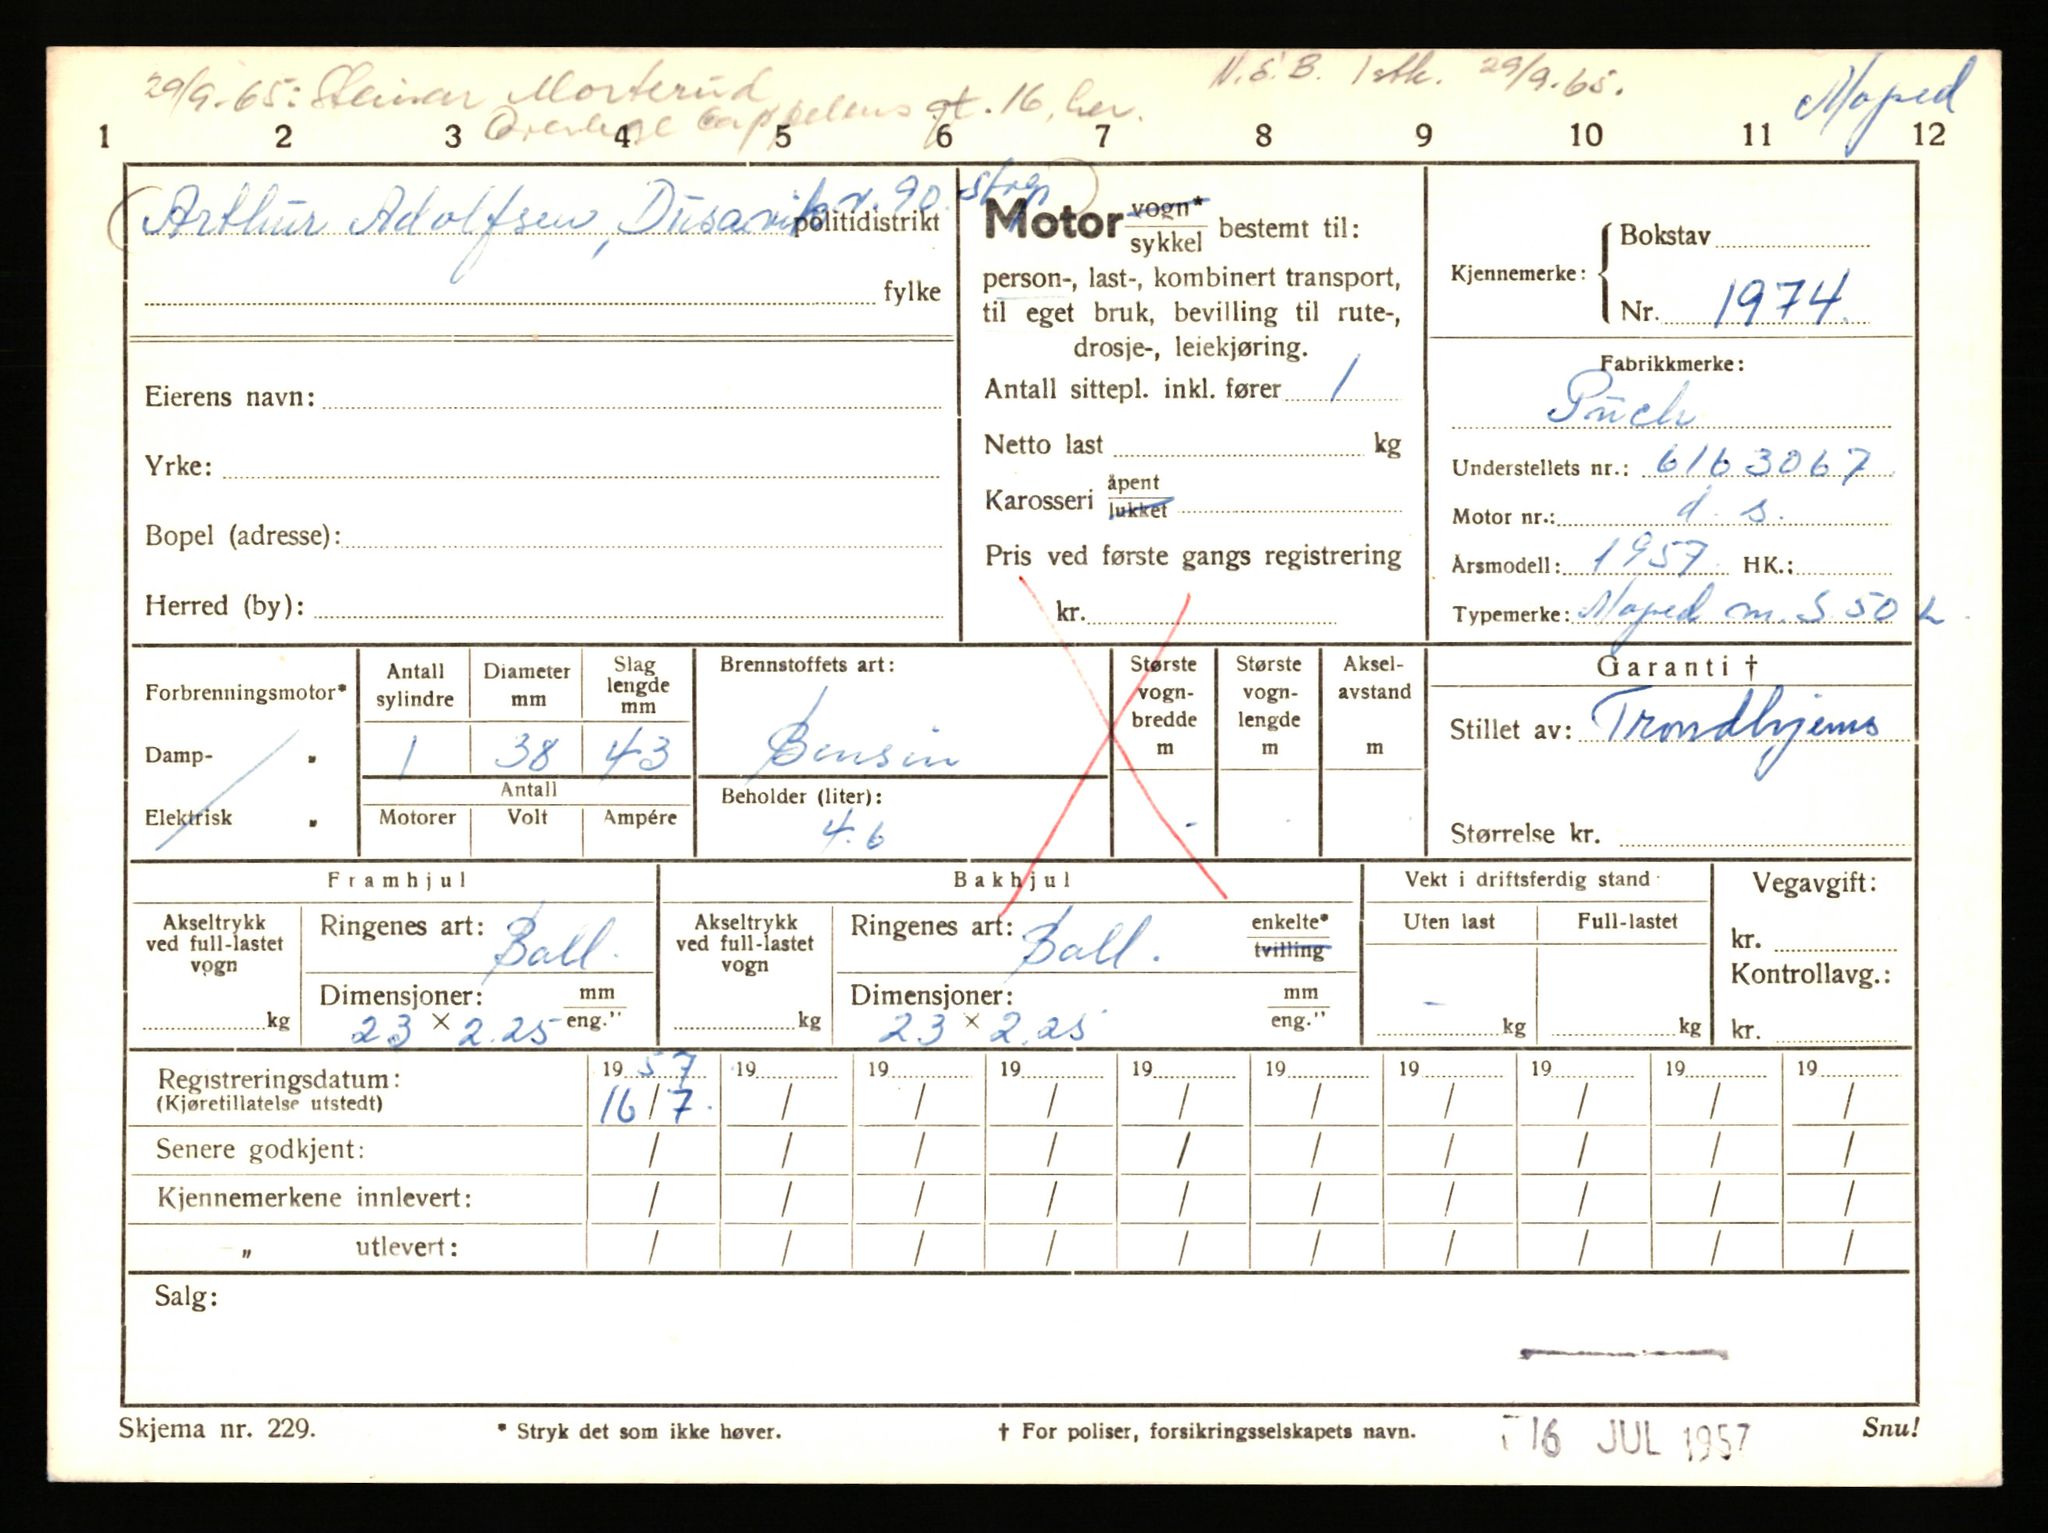 29/9-65: Steinar Morterud
gt. 16, her.
N.S.B. 1 stk. 29/9.65.
Moped
1 2 3 4 5 6 7 8 9 10 11 12
Arthur Adolfsen, Dusavikv. 90 Strgr
politidistrikt
fylke
Eierens navn:
Yrke:
Bopel (adresse):
Herred (by):
Motor vogn* / sykkel bestemt til:
person-, last-, kombinert transport,
til eget bruk, bevilling til rute-,
drosje-, leiekjøring.
Antall sittepl. inkl. fører 1
Netto last kg
Karosseri åpent / lukket
Pris ved første gangs registrering
kr.
Kjennemerke: { Bokstav
Nr. 1974.
Fabrikkmerke:
Puch
Understellets nr.: 6163067
Motor nr.: d. s.
Årsmodell: 1957. HK.:
Typemerke: Moped m.S. 50 L
Forbrenningsmotor*
Damp- "
Elektrisk "
Antall sylindre
1
Diameter mm
38
Slag lengde mm
43
Antall
Motorer Volt Ampére
Brennstoffets art:
Bensin
Beholder (liter):
4.6
Største vogn- bredde m
Største vogn- lengde m
Aksel- avstand m
Garanti †
Stillet av: Trondhjems
Størrelse kr.
Framhjul
Akseltrykk ved full-lastet vogn
kg
Ringenes art: Ball.
Dimensjoner: mm / eng."
23 x 2.25
Bakhjul
Akseltrykk ved full-lastet vogn
kg
Ringenes art: Ball. enkelte* / tvilling
Dimensjoner: mm / eng."
23 x 2.25
Vekt i driftsferdig stand
Uten last Full-lastet
- kg kg
Vegavgift:
kr.
Kontrollavg.:
kr.
Registreringsdatum: 1957 19 19 19 19 19 19 19 19 19
(Kjøretillatelse utstedt) 16/7. / / / / / / / / /
Senere godkjent: / / / / / / / / / /
Kjennemerkene innlevert: / / / / / / / / / /
" utlevert: / / / / / / / / / /
Salg:
Skjema nr. 229.
* Stryk det som ikke høver.
† For poliser, forsikringsselskapets navn.
16 JUL 1957
Snu!